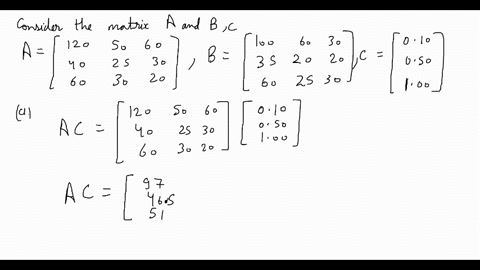 Consider the matrix A and B, C
A = [120 50 60 40 25 30 60 30 20], B = [100 60 30 35 20 20 60 25 30], C = [0.10 0.50 1.00]
(a) AC = [120 50 60 40 25 30 60 30 20] [0.10 0.50 1.00]
AC = [97 46.5 51